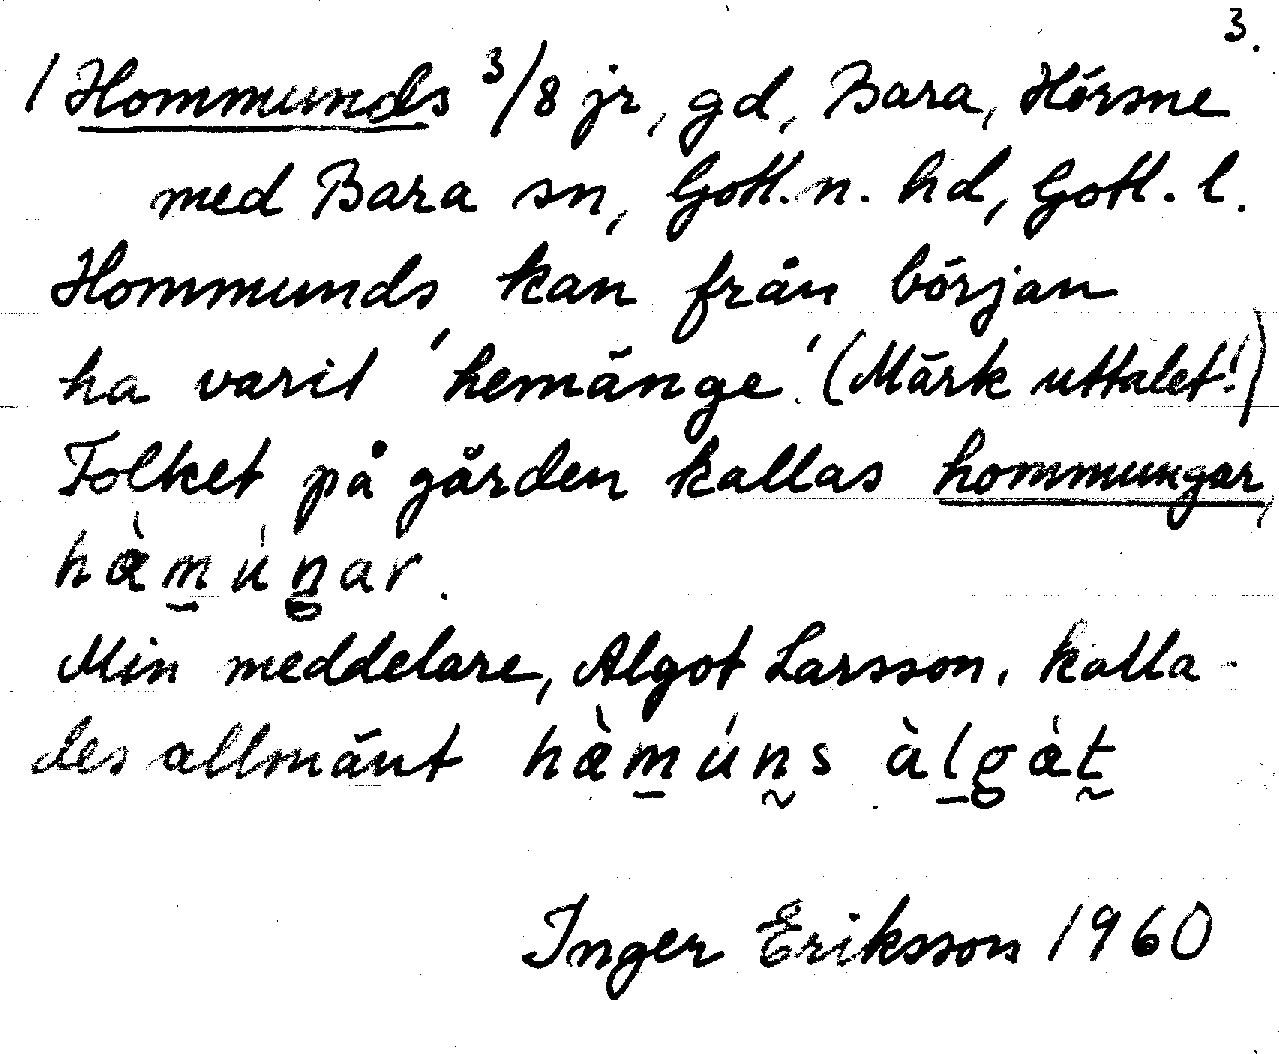 3.
1 Hommunds 3/8 jr, gd, Bara, Hörsne
med Bara sn, Gotl. n. hd, Gotl. l.
Hommunds kan från början
ha varit 'hemänge'. (Märk uttalet!)
Folket på gården kallas hommungar,
hæ̀múŋar.
Min meddelare, Algot Larsson, kalla-
des allmänt hæ̀múns àlgàt
Inger Eriksson 1960